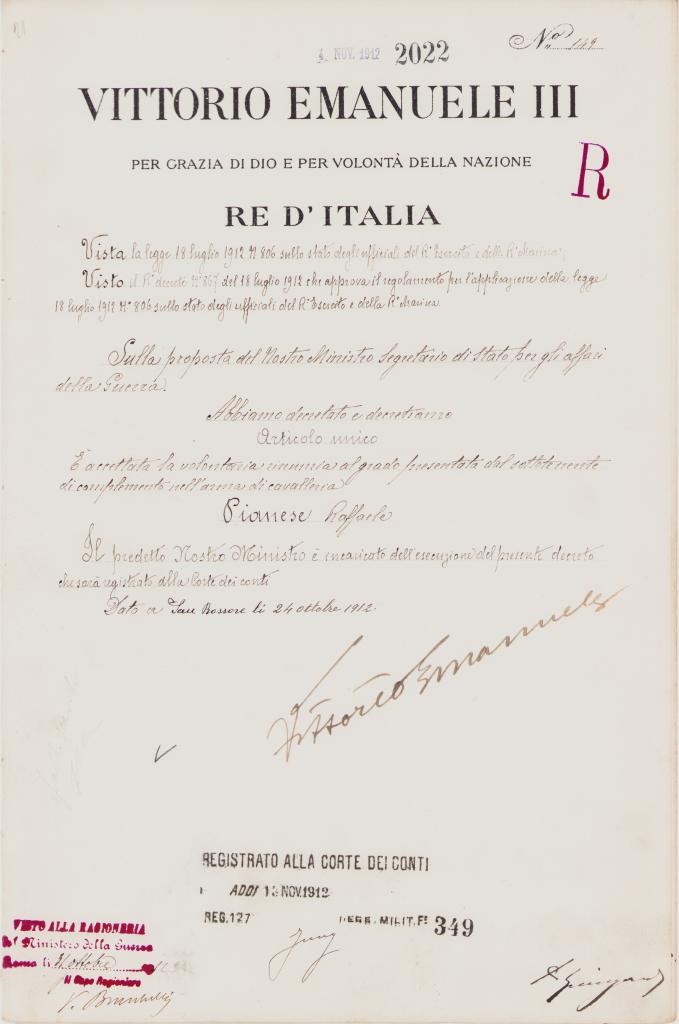 4 NOV. 1912 2022
No 149
VITTORIO EMANUELE III
PER GRAZIA DI DIO E PER VOLONTÀ DELLA NAZIONE
R
RE D'ITALIA
Vista la legge 18 luglio 1912 No 806 sullo stato degli ufficiali del Ro Esercito e della Ra Marina;
Visto il Ro decreto No 867 del 18 luglio 1912 che approva il regolamento per l'applicazione della legge
18 luglio 1912 No 806 sullo stato degli ufficiali del Ro Esercito e della Ra Marina
Sulla proposta del Nostro Ministro Segretario di Stato per gli affari
della Guerra.
Abbiamo decretato e decretiamo
Articolo unico
È accettata la volontaria rinuncia al grado presentata dal sottotenente
di complemento nell'arma di cavalleria
Pianese Raffaele
Il predetto Nostro Ministro è incaricato dell'esecuzione del presente decreto
che sarà registrato alla Corte dei conti
Dato a San Rossore li 24 ottobre 1912.
Vittorio Emanuele
REGISTRATO ALLA CORTE DEI CONTI
ADDI 13 NOV.1912
REG. 127 PERS. MILIT. Fo 349
VISTO ALLA RAGIONERIA
del Ministero della Guerra
Roma li 31 ottobre
Il Capo Ragioniere